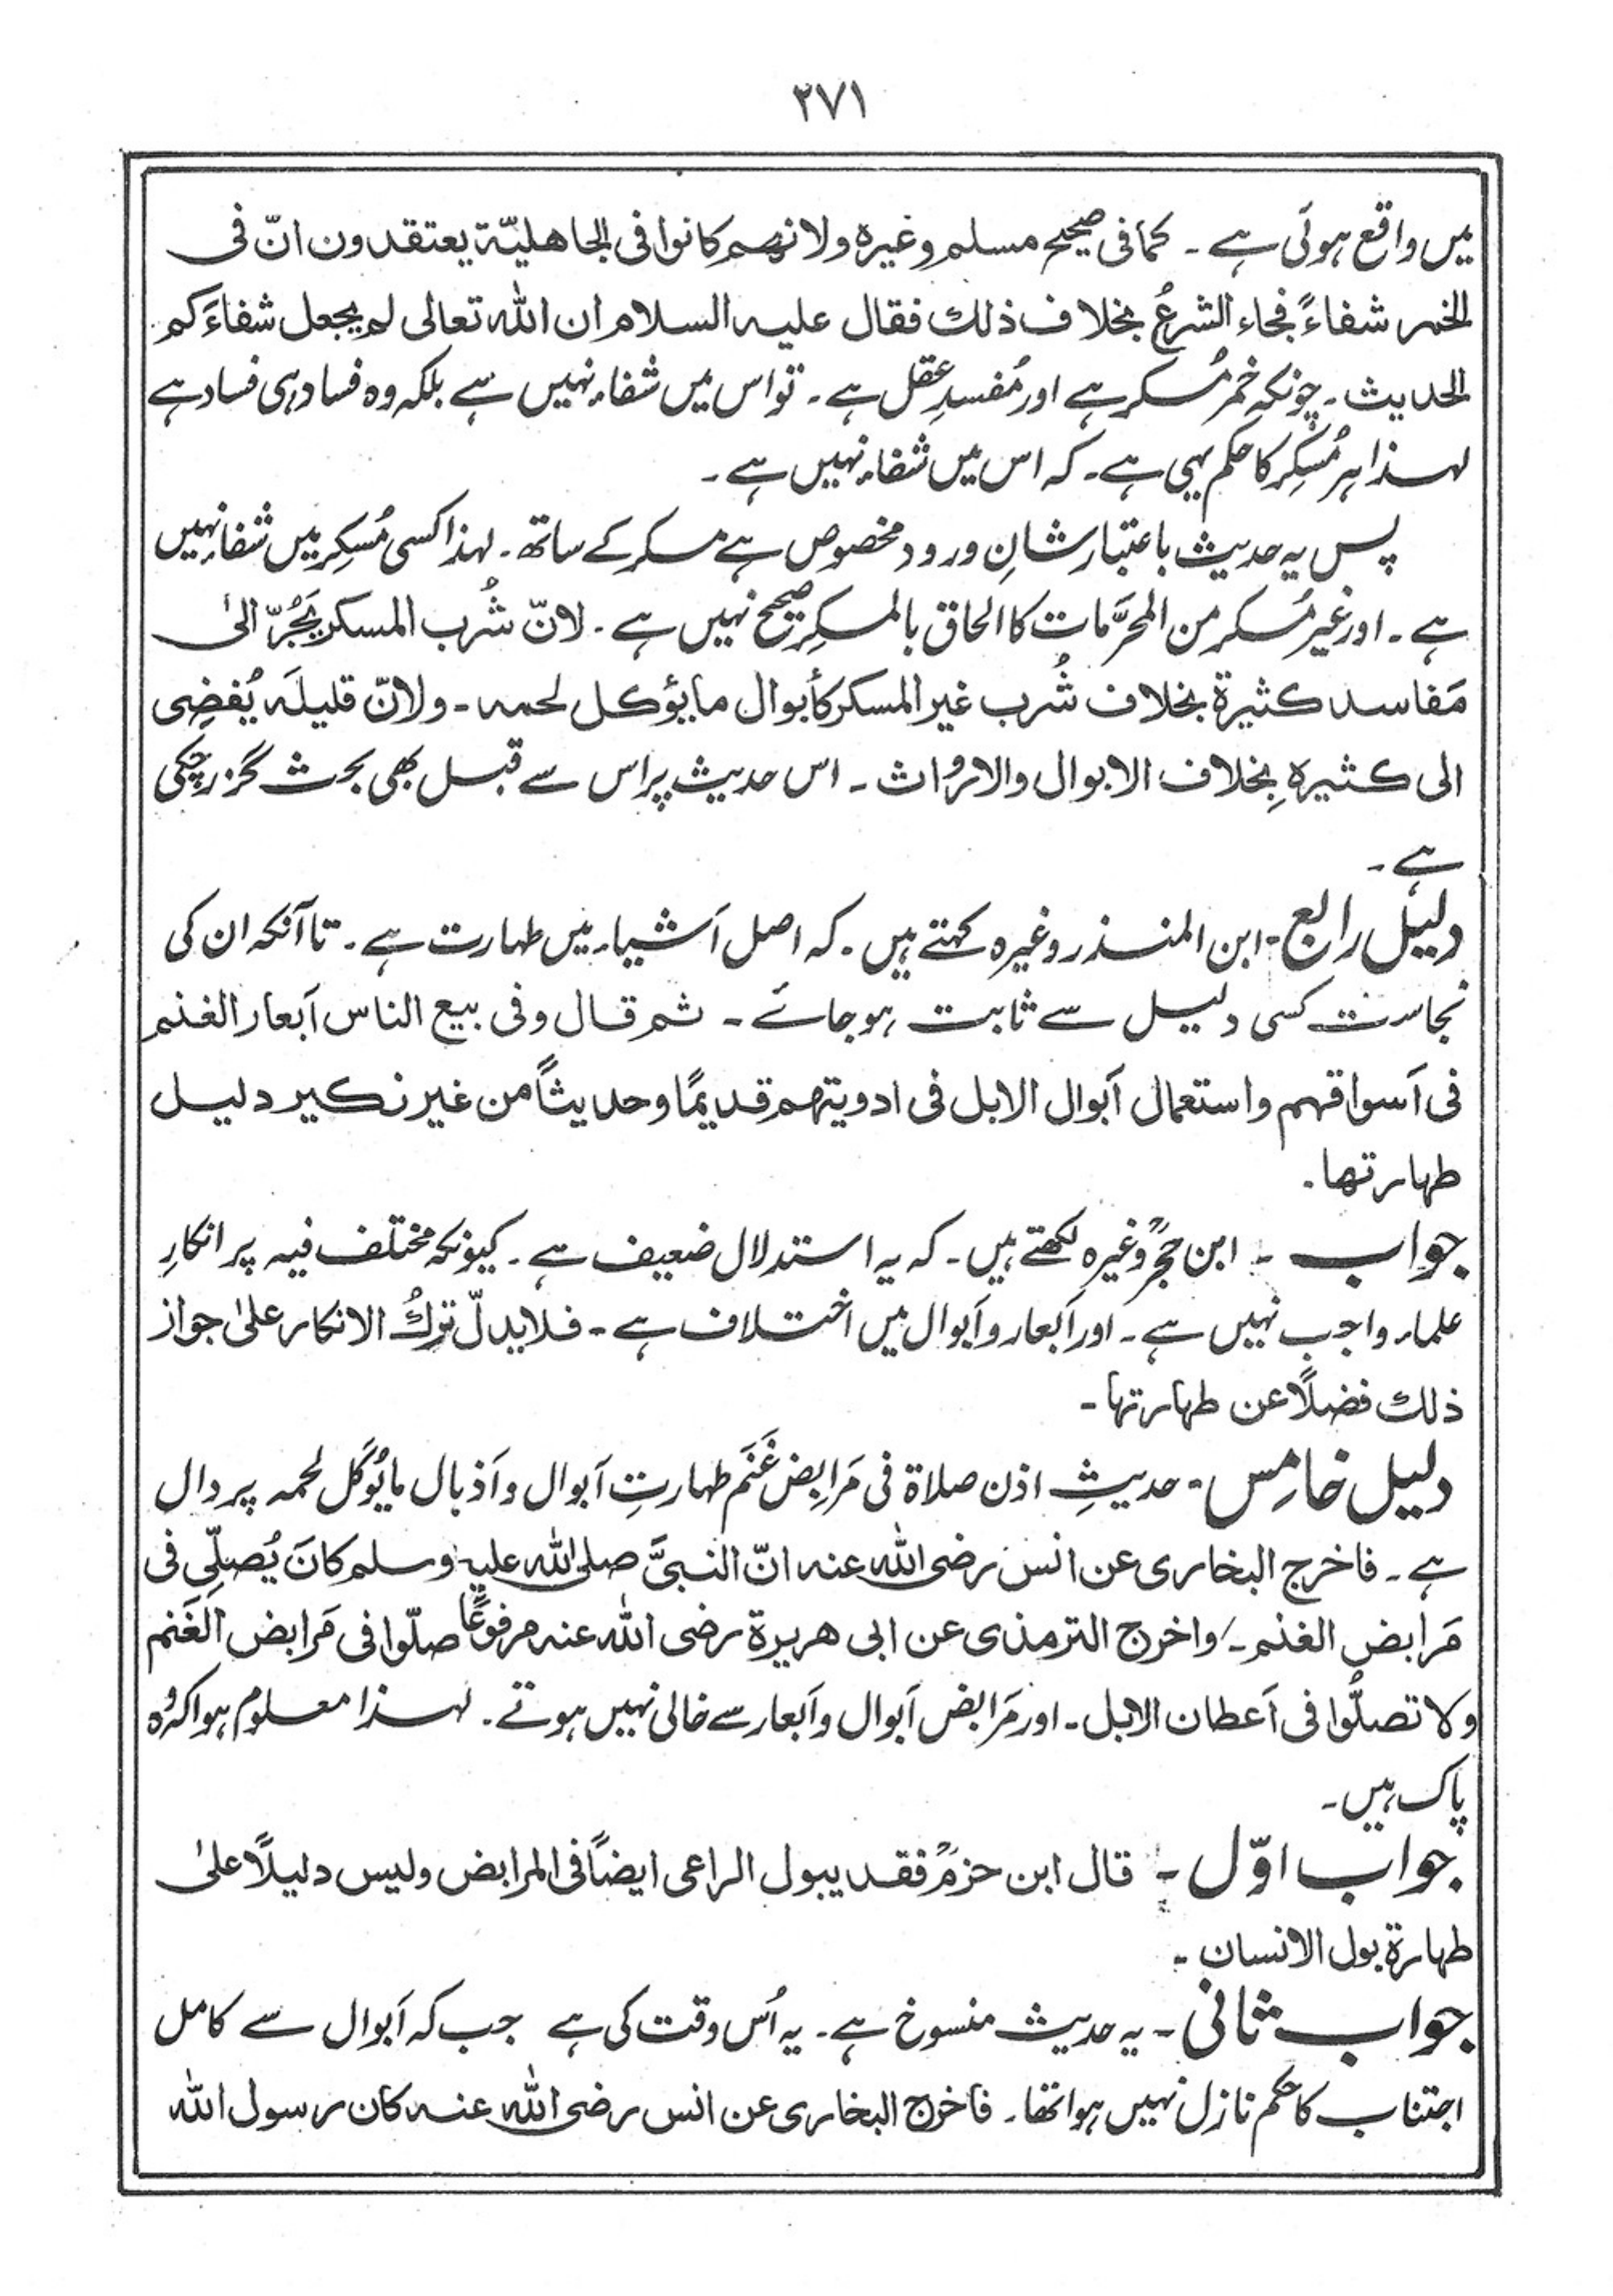 ۲۷۱
میں واقع ہوئی ہے ۔ کما فی صحیح مسلم وغیرہ ولانھم کانوا فی الجاھلیّۃ یعتقدون انّ فی
الخمر شفاءً فجاء الشرعُ بخلاف ذلک فقال علیہ السلام ان اللہ تعالی لم یجعل شفاءَکم
الحدیث ۔ چونکہ خمر مُسکر ہے اور مُفسدِ عقل ہے ۔ تو اس میں شفاء نہیں ہے بلکہ وہ فساد ہی فساد ہے
لہذا ہر مُسکِر کا حکم یہی ہے ۔ کہ اس میں شفاء نہیں ہے ۔
پس یہ حدیث باعتبار شانِ ورود مخصوص ہے مسکر کے ساتھ ۔ لہذا کسی مُسکِر میں شفاء نہیں
ہے ۔ اور غیر مُسکر من المحرَّمات کا الحاق بالمسکِر صحیح نہیں ہے ۔ لانّ شُرب المسکر یَجُرّ الیٰ
مَفاسد کثیرۃ بخلاف شُرب غیر المسکر کأبوال ما یؤکل لحمہ ۔ ولانّ قلیلَہ یُفضِی
الی کثیرہ بِخلاف الابوال والارواث ۔ اس حدیث پر اس سے قبل بھی بحث گزر چکی
ہے ۔
دلیل رابع ۔ ابن المنذر وغیرہ کہتے ہیں ۔ کہ اصل اَشیاء میں طہارت ہے ۔ تا آنکہ ان کی
نجاست کسی دلیل سے ثابت ہو جائے ۔ ثم قال وفی بیع الناس اَبعار الغنم
فی اَسواقھم واستعمال اَبوال الابل فی ادویتھم قدیمًا وحدیثاً من غیر نکیر دلیل
طہارتھا ۔
جواب ۔ ابن حجرؒ وغیرہ لکھتے ہیں ۔ کہ یہ استدلال ضعیف ہے ۔ کیونکہ مختلف فیہ پر انکارِ
علماء واجب نہیں ہے ۔ اور اَبعار و اَبوال میں اختلاف ہے ۔ فلا یدلّ ترکُ الانکار علیٰ جواز
ذلک فضلًا عن طہارتہا ۔
دلیل خامِس ۔ حدیثِ اذن صلاۃ فی مَرابِض غَنَم طہارتِ اَبوال و اَذبال ما یُؤکَل لحمہ پر دال
ہے ۔ فاخرج البخاری عن انس رضی اللہ عنہ انّ النبیَّ صلی اللہ علیہ وسلم کانَ یُصلِّی فی
مَرابض الغنم ۔ واخرج الترمذی عن ابی ھریرۃ رضی اللہ عنہ مرفوعًا صلّوا فی مَرابض الغَنم
ولا تصلُّوا فی اَعطان الابل ۔ اور مَرابض اَبوال و اَبعار سے خالی نہیں ہوتے ۔ لہذا معلوم ہوا کہ وُہ
پاک ہیں ۔
جواب اوّل ۔ قال ابن حزمؒ فقد یبول الراعی ایضاً فی المرابض ولیس دلیلًا علیٰ
طہارۃ بول الانسان ۔
جواب ثانی ۔ یہ حدیث منسوخ ہے ۔ یہ اُس وقت کی ہے جب کہ اَبوال سے کامل
اجتناب کا حکم نازل نہیں ہوا تھا ۔ فاخرج البخاری عن انس رضی اللہ عنہ کان رسول اللہ